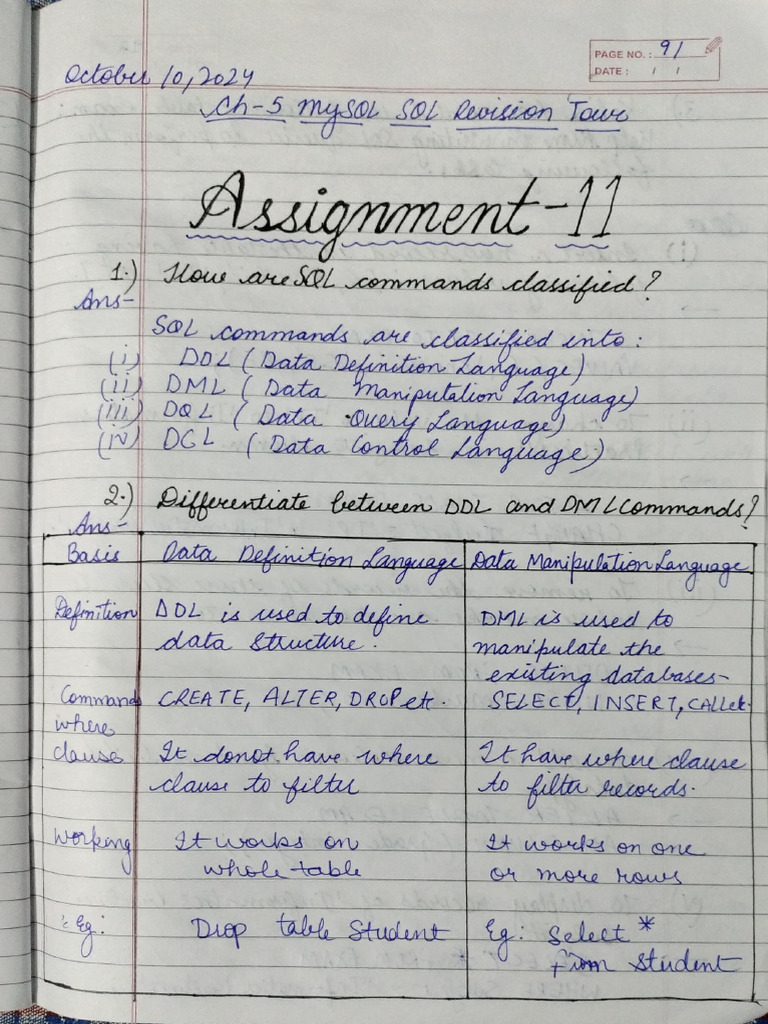 PAGE NO.: 91
DATE: / /
October 10, 2024
Ch-5 MySQL SQL Revision Tour
Assignment-11
1.) How are SQL commands classified?
Ans-
SQL commands are classified into:
(i) DDL (Data Definition Language)
(ii) DML (Data Manipulation Language)
(iii) DQL (Data Query Language)
(iv) DCL (Data Control Language)
2.) Differentiate between DDL and DML Commands?
Ans-
Basis Data Definition Language Data Manipulation Language
Definition DDL is used to define DML is used to
data structure. manipulate the
existing databases-
Commands CREATE, ALTER, DROP etc. SELECT, INSERT, CALL etc.
where
clause It donot have where It have where clause
clause to filter to filter records.
Working It works on It works on one
whole table or more rows
Eg: Drop table Student Eg: Select *
from Student